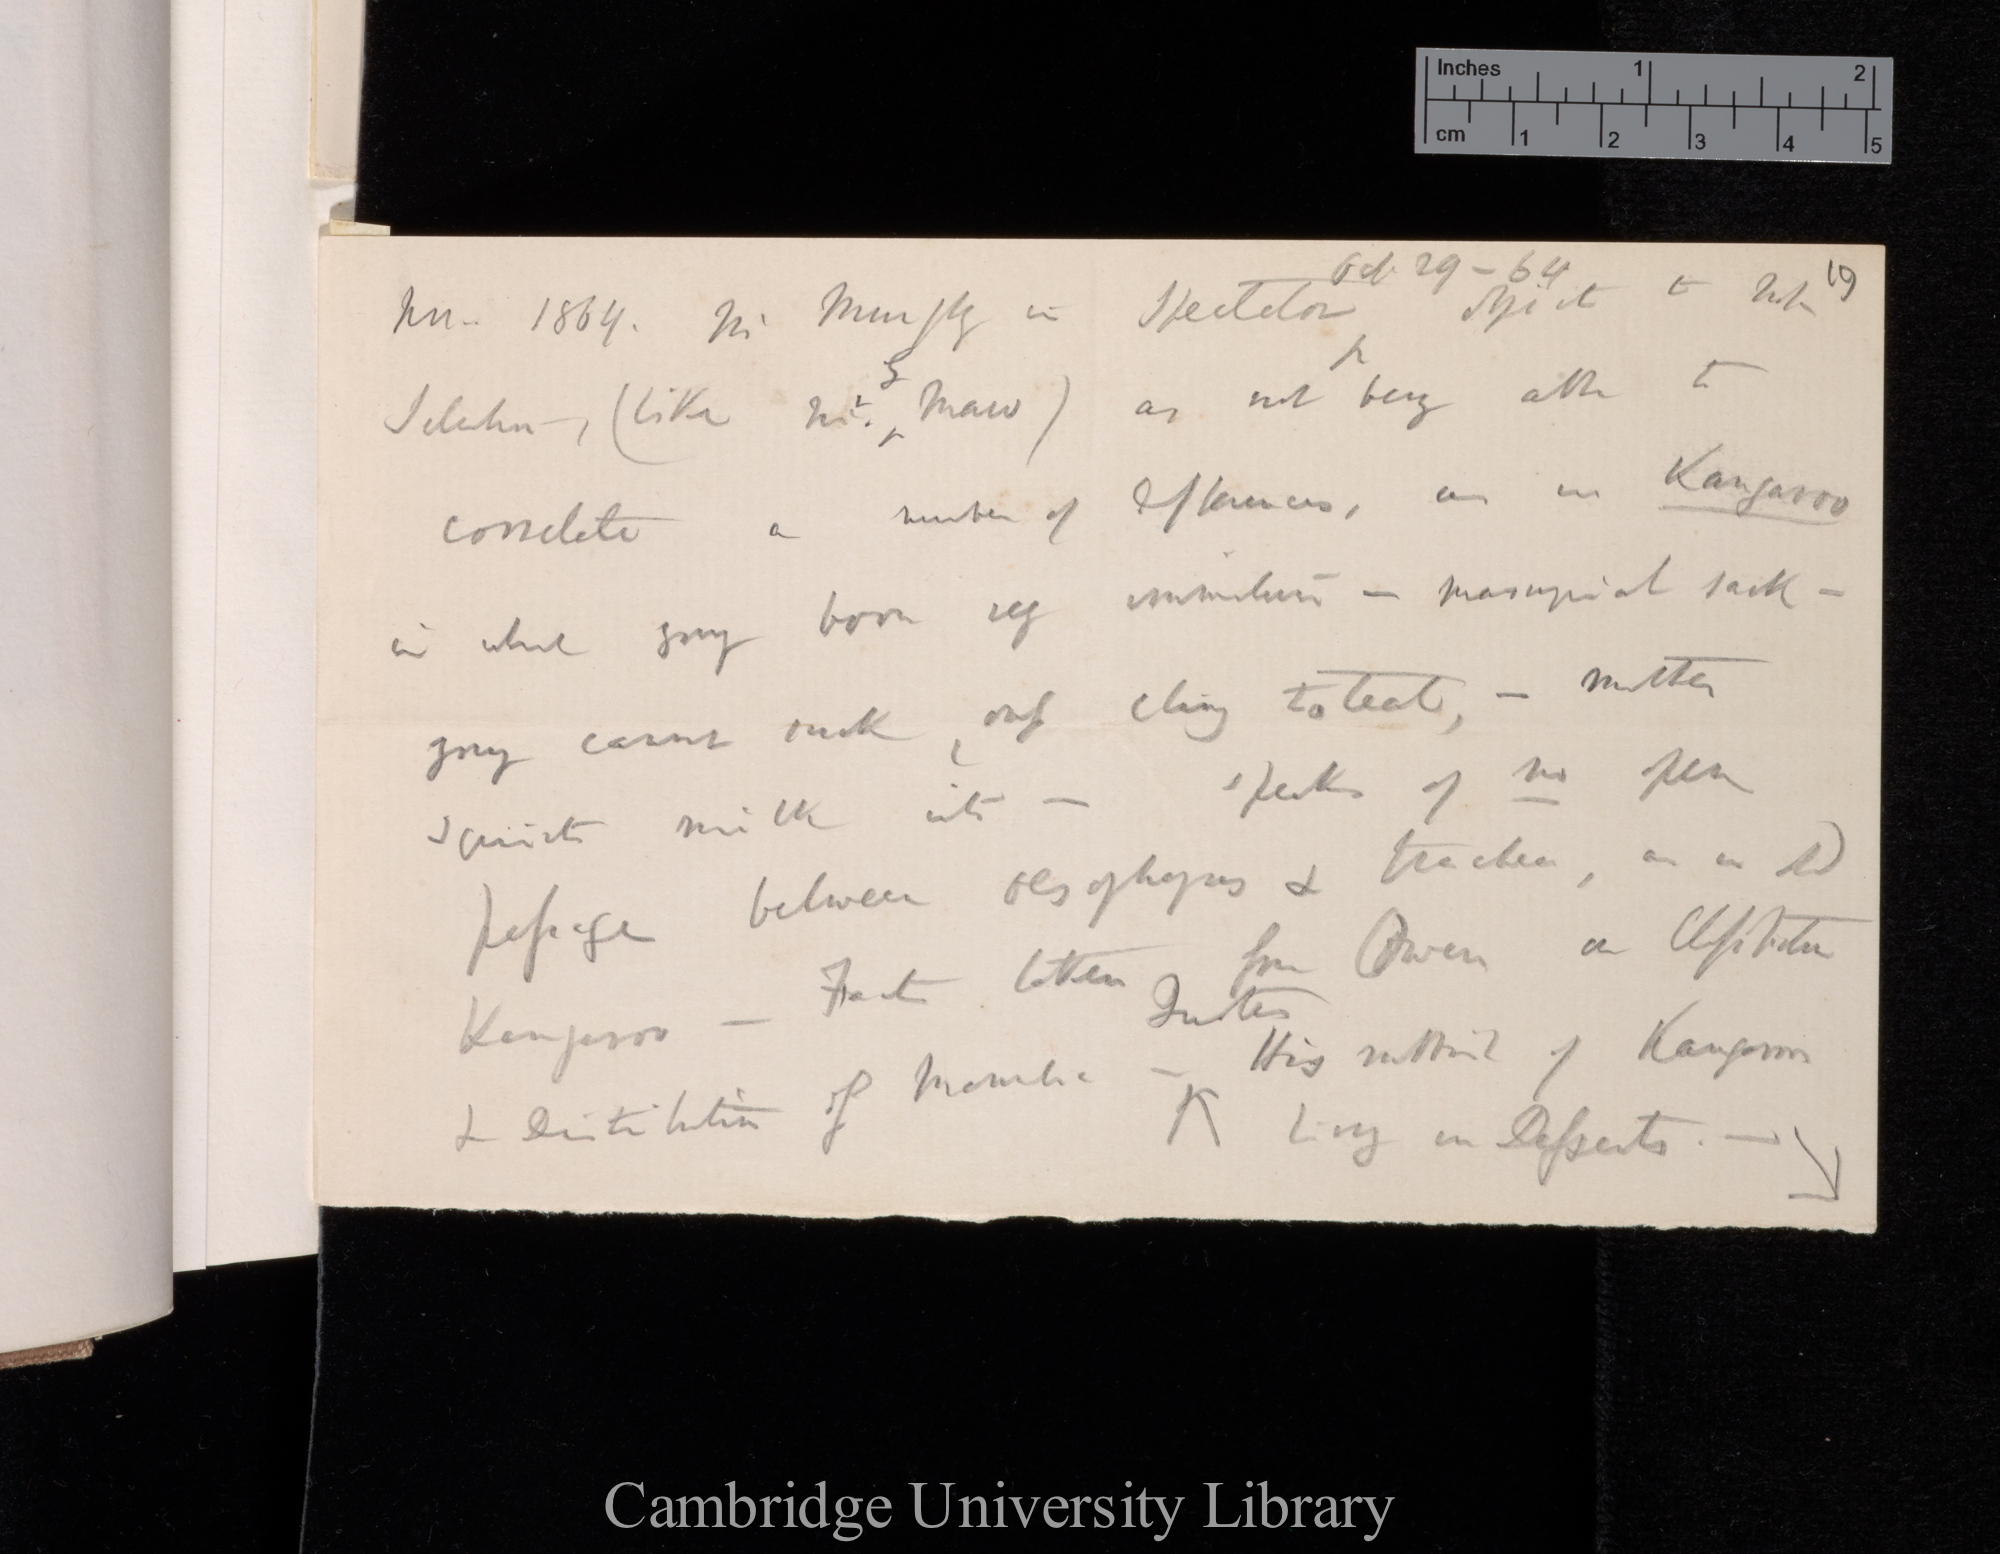 Inches 1 2
cm 1 2 3 4 5
19
Oct 29 - 64
Nov. 1864. Mr Murphy in Spectator object to Nat
Selection, (like Mr. J Maw) as not being able to
correlate a number of differences, as in Kangaroo
in which young born very immature — marsupial sack —
young cannot suck, only cling to teat, — mother
squirts milk into — speaks of no open
passage between oesophagus & trachea, as in
Kangaroo — Facts taken from Owen on Classification
& Distribution of Mammalia — His method of Kangaroos
Quotes
living in Desserts. —
Cambridge University Library